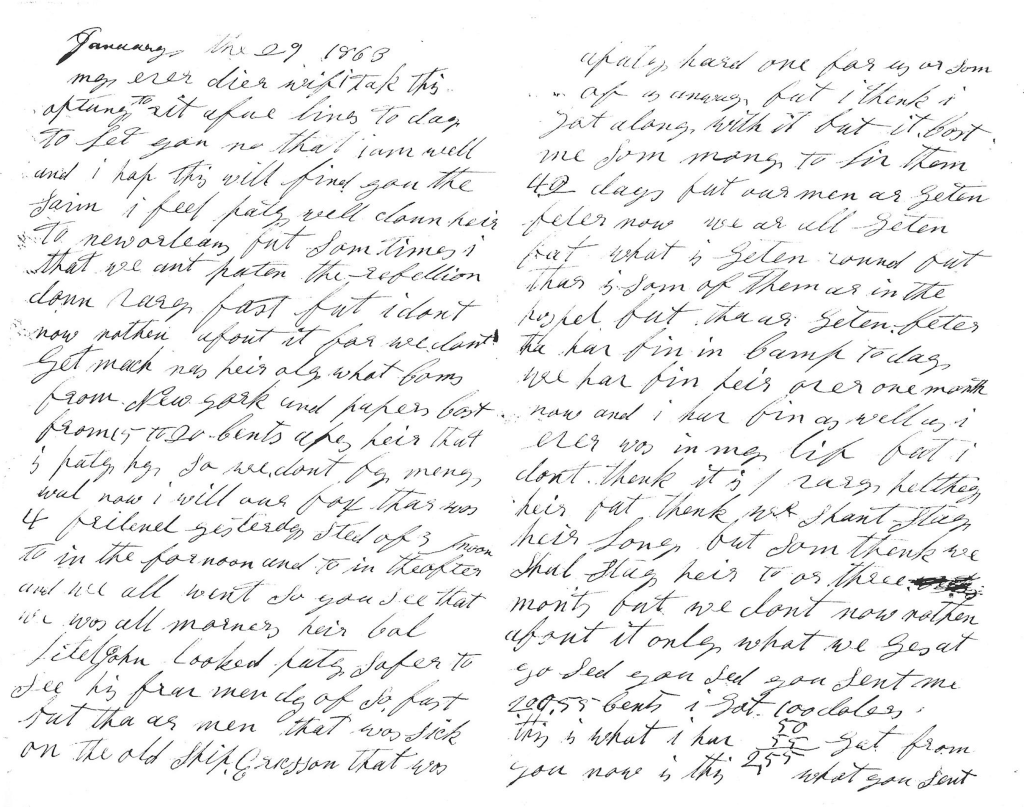 January the 29 1863
my ever dier wif i tak this
optuny to rit a fue lines to day
to Let you no that i am well
and i hop this will find you the
Saim i feel paty well down heir
to neworleans but Som times i
that we ant puten the rebellion
down varey fast but i dont
now nothen about it for we dont
Get much nus heir oly what Coms
from New york and papers Cost
from 15 to 20 Cents a pes heir that
is paty hy So we dont by meney
wal now i will our boy thar was
4 beried yesterday Sted of 3
to in the for noon and to in the after noon
and we all went So you See that
we wos all morners heir Col
Liteljohn Looked paty Sober to
See his brav men dy of So fast
but tha ar men that was Sick
on the old Ship Ericsson that was
a paty hard one for us or Som
of us anuay but i thenk i
Got along with it but it Cost
me Som money to Liv them
42 days but our men ar Geten
beter now we ar all Geten
fat what is Geten round but
thar is Som of them ar in the
hospel but tha ar Geten beter
tha hav bin in Camp to day
we hav bin heir over one month
now and i hav bin as well as i
ever wos in my Lif but i
dont thenk it is varey helthey
heir but thenk we Shant Stay
heir Long but Som thenk we
Shal Stay heir to or three
monts but we dont now nothen
about it only what we Ges at
yo Sed you Sed you Sent me
200.55 Cents i Got 100 dolers
this is what i hav Gat from
50
55
255
you now is this what you Sent